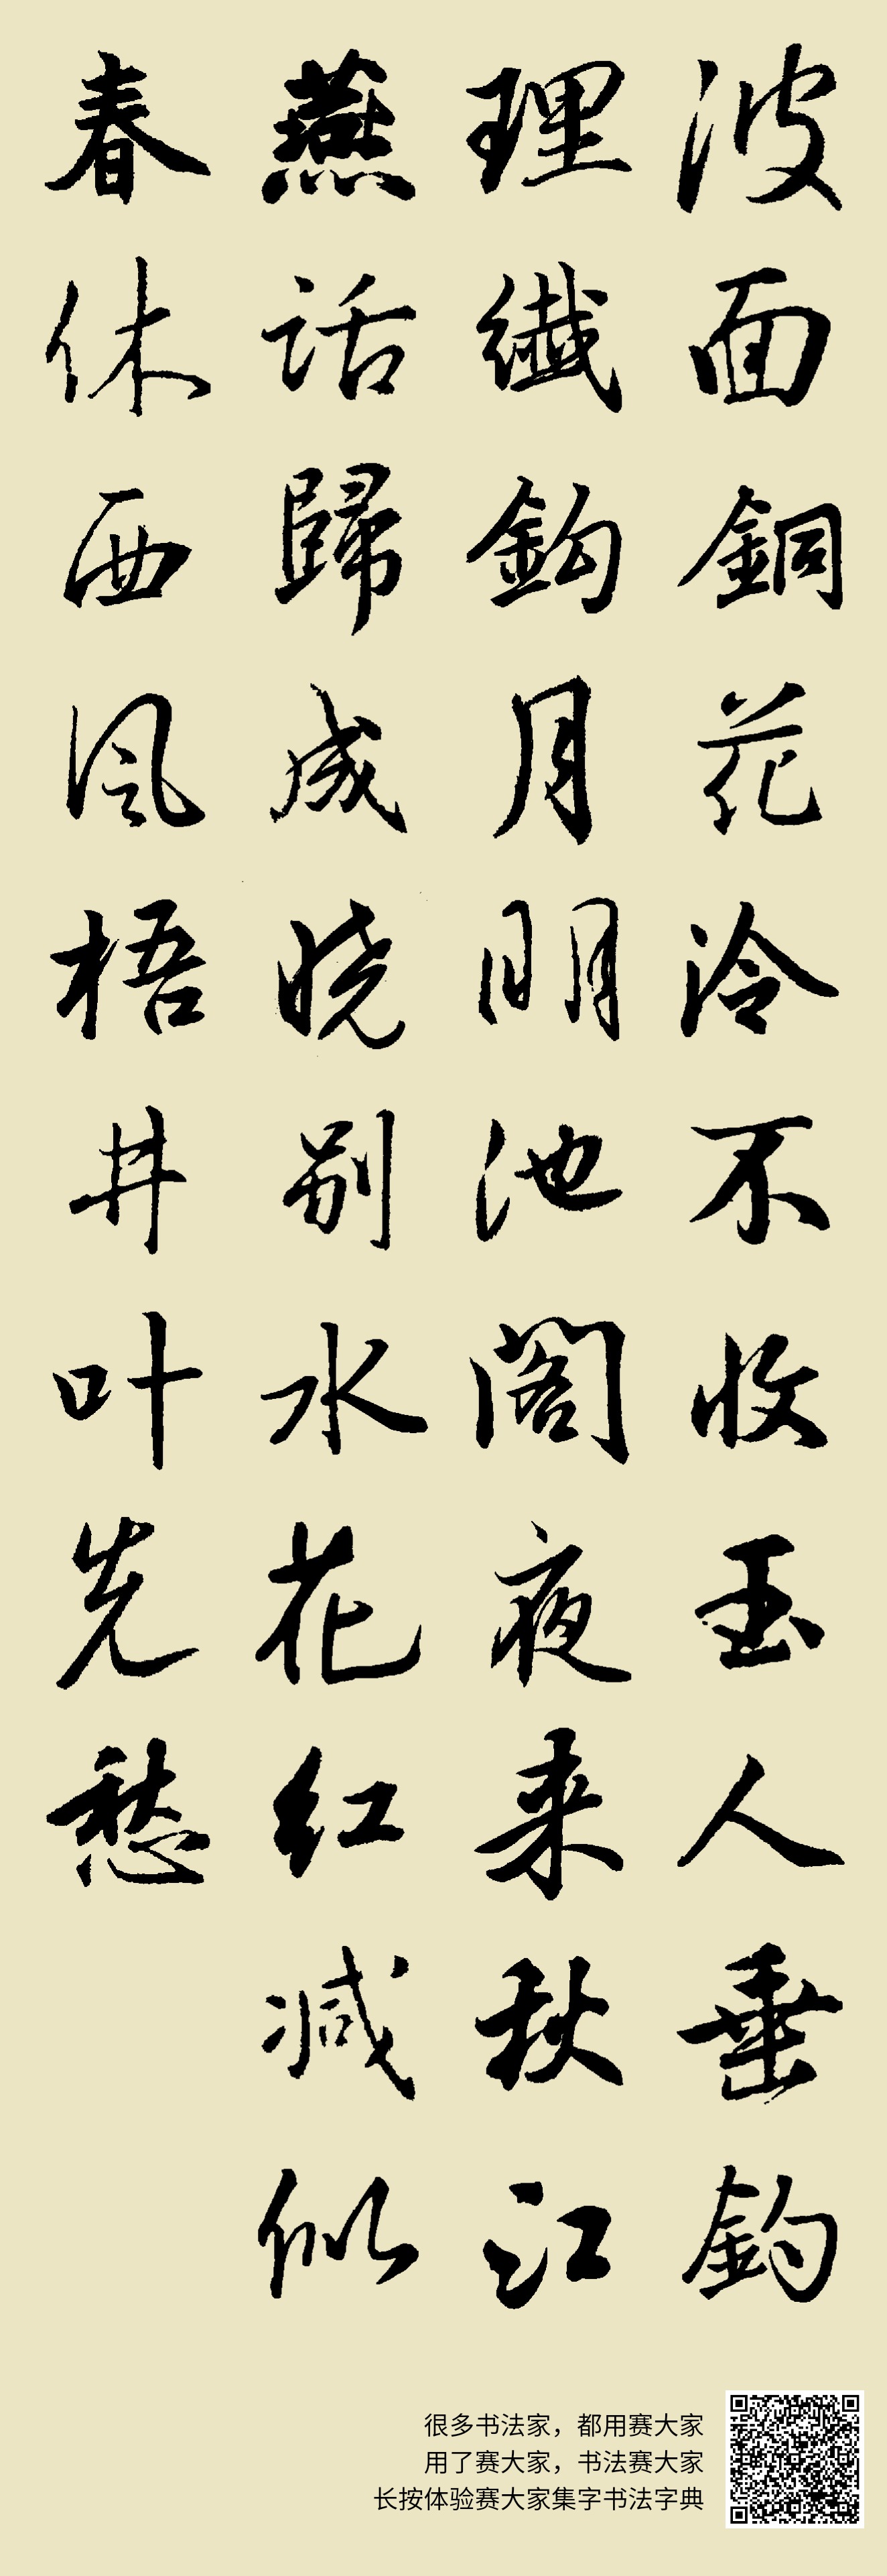 波面銅花冷不收玉人垂釣
理纖鈎月明池閣夜来秋江
燕話歸成晓别水花红减似
春休西风梧井叶先愁
很多书法家，都用赛大家
用了赛大家，书法赛大家
长按体验赛大家集字书法字典